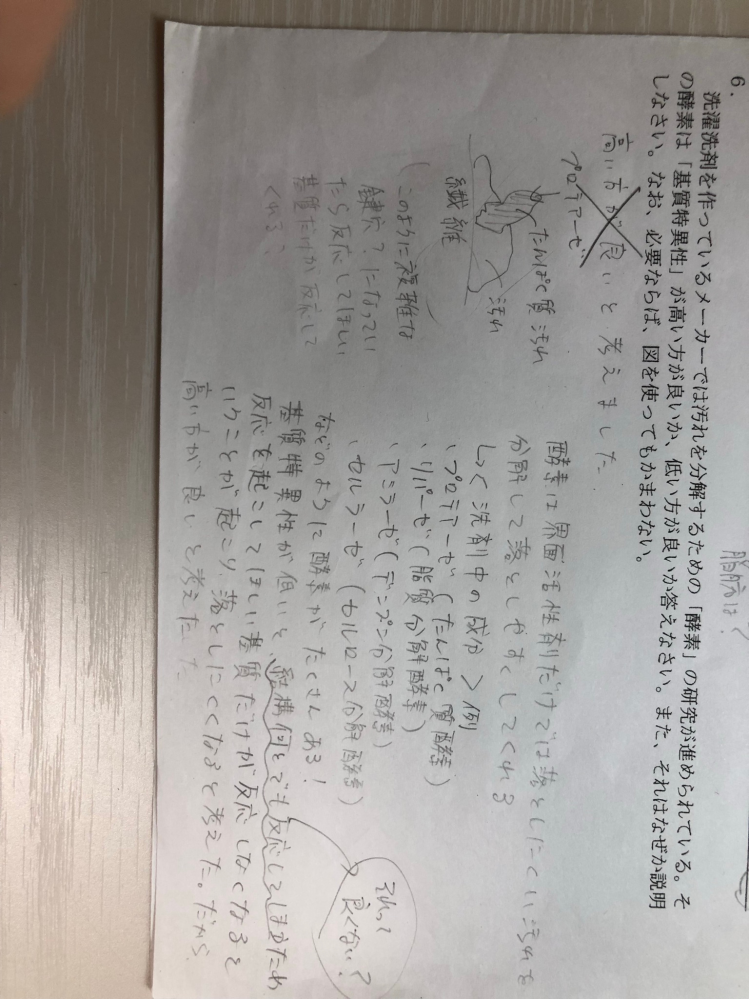 6.
洗濯洗剤を作っているメーカーでは汚れを分解するための「酵素」の研究が進められている。そ
の酵素は「基質特異性」が高い方が良いか、低い方が良いか答えなさい。また、それはなぜか説明
しなさい。なお、必要ならば、図を使ってもかまわない。
高い方が良いと考えました.
プロテアーゼ
たんぱく質汚れ
汚れ
繊維
(このように複雑な
鍵穴?になってい
たら反応してほしい
基質だけが反応して
くれる?
酵素は界面活性剤だけでは落としにくい汚れを
分解して落としやすくしてくれる
しく洗剤中の成分>例
・プロテアーゼ(たんぱく質酵素)
・リパーゼ(脂質分解酵素)
・アミラーゼ(デンプン分解酵素)
・セルラーゼ(セルロース分解酵素)
などのように酵素がたくさんある!
基質特異性が低いと、結構何とでも反応してしまうため
反応を起こしてほしい基質だけが反応しなくなると
いうことが起こり、落としにくくなると考えた。だから、
高い方が良いと考えた
それって
良くない?
脂肪は?